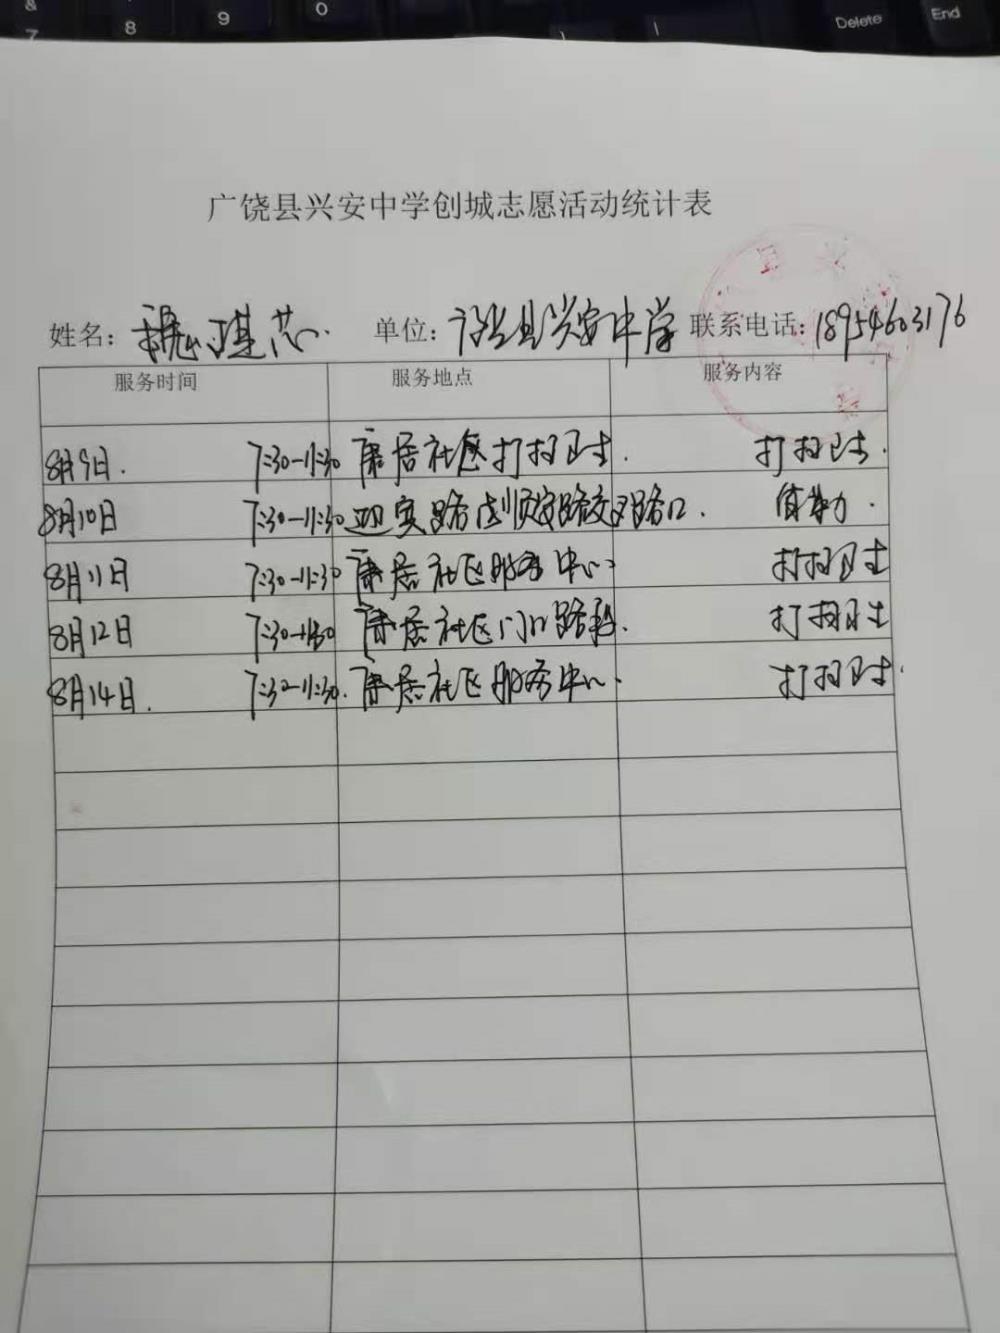 &
7
8
9
0
Delete
End
广饶县兴安中学创城志愿活动统计表
姓名：魏琪芯. 单位：广饶县兴安中学 联系电话：18954603176
服务时间 服务地点 服务内容
8月9日. 7:30-11:30 康居社区打扫卫生. 打扫卫生.
8月10日 7:30-11:30 迎宾路 顺安路交叉路口. 值勤.
8月11日 7:30-11:30 康居社区服务中心 打扫卫生
8月12日 7:30-11:30 康居社区门口路段. 打扫卫生
8月14日. 7:30-11:30. 康居社区服务中心. 打扫卫生.